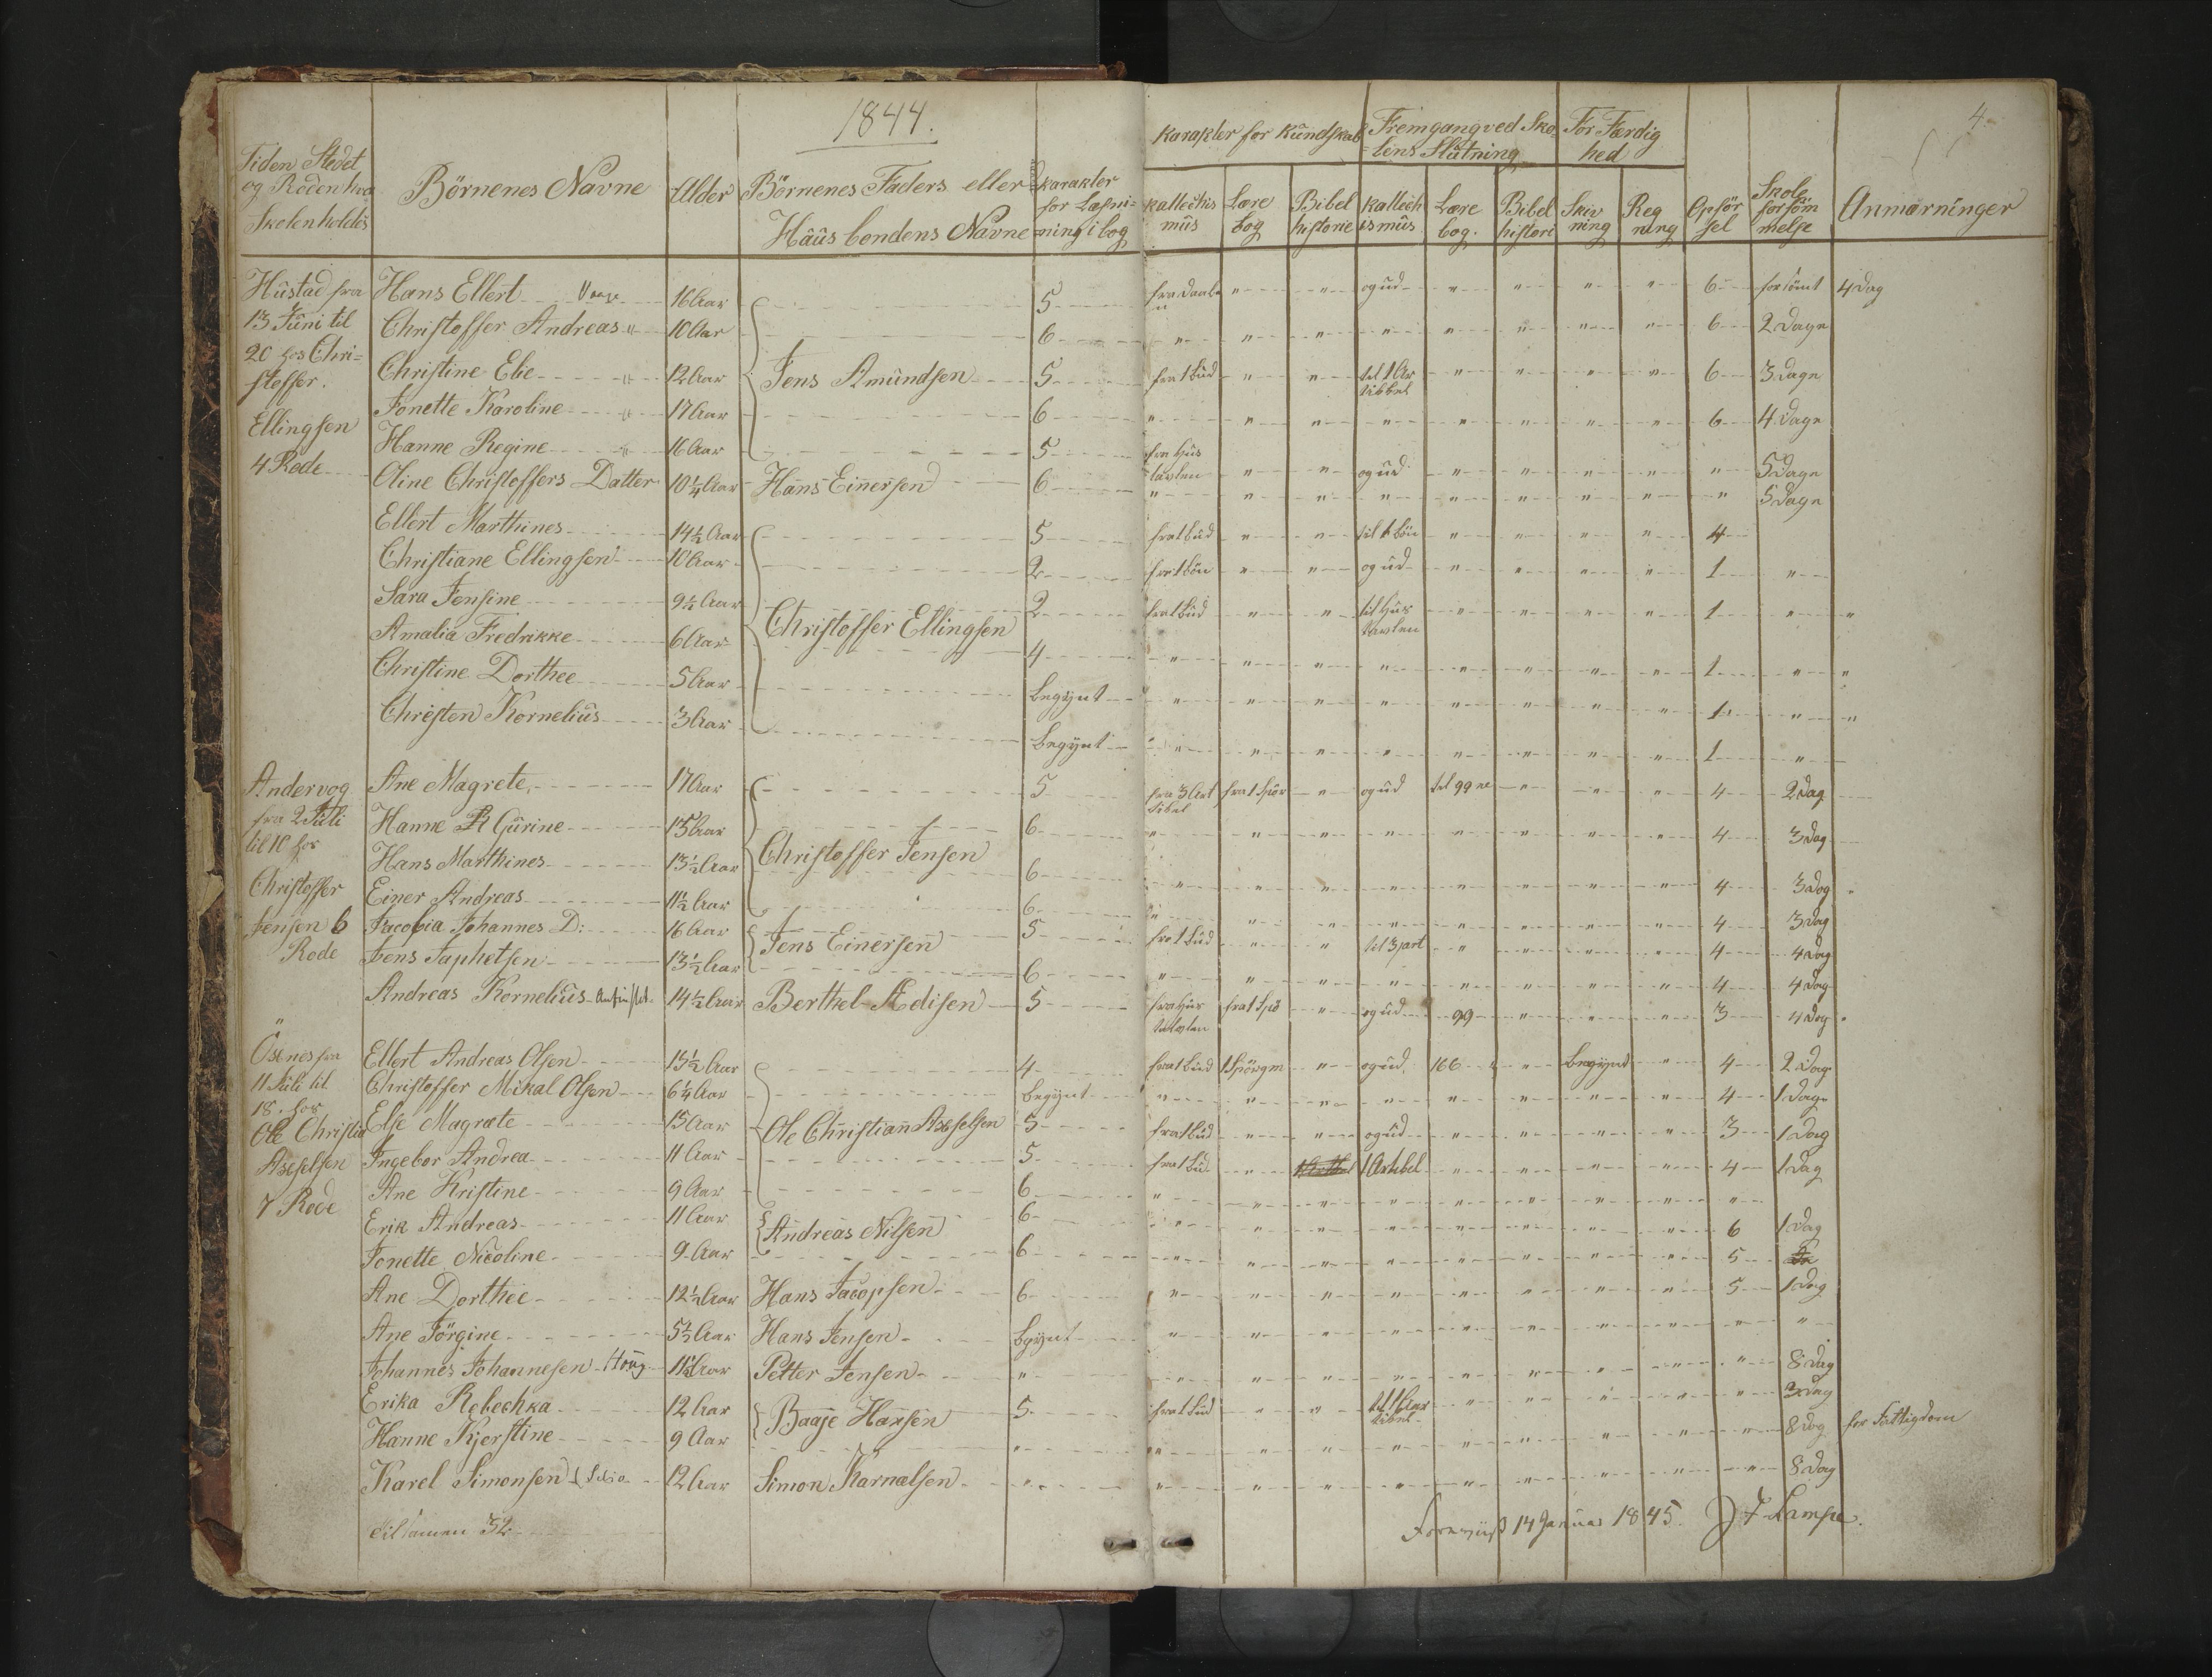 1844.
4.
Tiden Stedet og Roden hvor Skolen holdes
Börnenes Navne
Alder
Börnenes Faders eller Huusbondens Navne
Karakter for Læsnining i bog
Karakter for Kundskab
Kattechismus
Lære bog
Bibel historie
Fremgang ved Skolens Slutning
Kattechismus
Lære bog.
Bibel histori
For Færdighed
Skivning
Regning
Opförsel
Skole forsömmelse
Anmærninger
Hustad fra 13 Juni til 20 hos Christoffer Ellingsen 4 Rode
Hans Ellert 16 Aar 5 fra daaben " " ogud " " " " 6 forsömt 4 Dag
Christoffer Andreas " 10 Aar 6 " " " " " " " " 6 2 Dage
Christine Elie " 12 Aar Jens Amundsen 5 fra 1 bud " " til 1 Ar tikkel " " " " 6 3 Dage
Jonette Karoline " 17 Aar 6 " " " " " " " " 6 4 Dage
Hanne Regine " 16 Aar 5 fra Hus tavlen " " ogud " " " " " 5 Dage
Oline Christoffers Datter 10 1/4 Aar Hans Einersen 6 " " " " " " " " " 5 Dage
Ellert Marthines 14 1/2 Aar 5 fra 1 bud " " til 1 bön " " " " 4
Christiane Ellingsen 10 Aar 2 fra 1 bön " " ogud " " " " 1 "
Sara Jensine 9 1/2 Aar Christoffer Ellingsen 2 fra 1 bud " " til Hus tavlen " " " " 1 " "
Amalia Fredrikke 6 Aar 4 " " " " " " " " 1 " "
Christine Dorthee 5 Aar begynt " " " " " " " " 1 " "
Christen Kornelius 3 Aar begynt " " " " " " " " 1 "
Andervog fra 2 Juli til 10 hos Christoffer Jensen 6 Rode
Ane Magrete 17 Aar 5 fra 3 Art tikel fra 1 Spör " ogud til 99 " " " 4 2 Dag
Hanne Gurine 15 Aar 6 " " " " " " " " 4 3 Dag
Hans Marthines 13 1/2 Aar Christoffer Jensen 6 " " " " " " " " 4 3 Dag
Einer Andreas 11 1/2 Aar 6 " " " " " " " " 4 3 Dag
Jacobia Johannes D: 16 Aar Jens Einersen 5 fra 1 bud " " til 3 part " " " " 4 4 Dag
Jens Japhetsen 13 1/2 Aar 6 " " " " " " " " 4 4 Dag
Andreas Kornelius 14 1/2 Aar Berthel Ædisen 5 fra Hus tavlen fra 1 Spö " ogud 99 " " " 3 4 Dag
Osenes fra 11 Juli til 18. hos Ole Christia Axselsen 7 Rode
Ellert Andreas Olsen 13 1/2 Aar 4 fra 1 bud 1 Spörgm " ogud 166 " begynt " 4 2 Dag
Christoffer Mikal Olsen 6 1/4 Aar begynt " " " " " " " " 4 1 Dag
Else Magrate 15 Aar Ole Christian Axselsen 5 fra 1 bud " " ogud " " " " 3 1 Dag
Ingebor Andrea 11 Aar 5 fra 1 bud " 1 Artikel " " " " 4 1 Dag
Ane Kristine 9 Aar 6 " " " " " " " " "
Erik Andreas 11 Aar Andreas Nilsen 6 " " " " " " " " 6 1 Dag
Jonette Nicoline 9 Aar 6 " " " " " " " " 5
Ane Dorthee 12 1/2 Aar Hans Jacopsen 6 " " " " " " " " 5 1 Dag
Ane Jörgine 5 1/2 Aar Hans Jensen bgynt " " " " " " " " " "
Johannes Johannesen Houg 11 1/2 Aar Petter Jensen " " " " " " " " " " 8 Dag
Erika Rebechka 12 Aar Baaje Hansen 5 fra 1 bud " " til 1 Aar tikel " " " " " 3 Dag
Hanne Kjerstine 9 Aar " " " " " " " " " " 8 Dag for Fattigdom
Karel Simonsen 12 Aar Simon Karnælsen " " " " " " " " " " 8 Dag
tilsamen 32
14 Januar 1845.